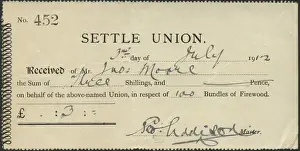 No. 452
SETTLE UNION.
3rd day of July 1912
Received of Mr. Jno. Moore
the Sum of three Shillings, and Pence,
on behalf of the above-named Union, in respect of 100 Bundles of Firewood.
£ : 3 :
Master.